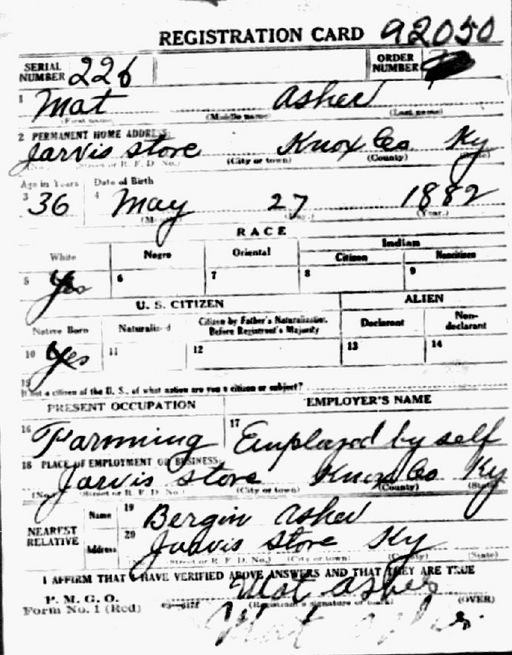 REGISTRATION CARD 92050
SERIAL NUMBER 226 ORDER NUMBER
1 Mat Asher
(First name) (Middle name) (Last name)
2 PERMANENT HOME ADDRESS:
Jarvis Store Knox Co Ky
(Street or R. F. D. No.) (City or town) (County) (State)
Age in Years Date of Birth
3 36 4 May 27 1882
(Month.) (Day.) (Year.)
RACE
White Negro Oriental Indian
Citizen Noncitizen
5 Yes 6 7 8 9
U. S. CITIZEN ALIEN
Native Born Naturalized Citizen by Father's Naturalization Before Registrant's Majority Declarant Non-declarant
10 Yes 11 12 13 14
15
If not a citizen of the U. S., of what nation are you a citizen or subject?
PRESENT OCCUPATION EMPLOYER'S NAME
16 Farming 17 Employed by self
18 PLACE OF EMPLOYMENT OR BUSINESS:
Jarvis Store Knox Co Ky
(No.) (Street or R. F. D. No.) (City or town) (County) (State)
NEAREST RELATIVE Name 19 Bergin Asher
Address 20 Jarvis Store Ky
(Street or R. F. D. No.) (City or town) (County) (State)
I AFFIRM THAT I HAVE VERIFIED ABOVE ANSWERS AND THAT THEY ARE TRUE
P. M. G. O.
Form No. 1 (Red) Mat Asher
(Registrant's signature or mark) (OVER)